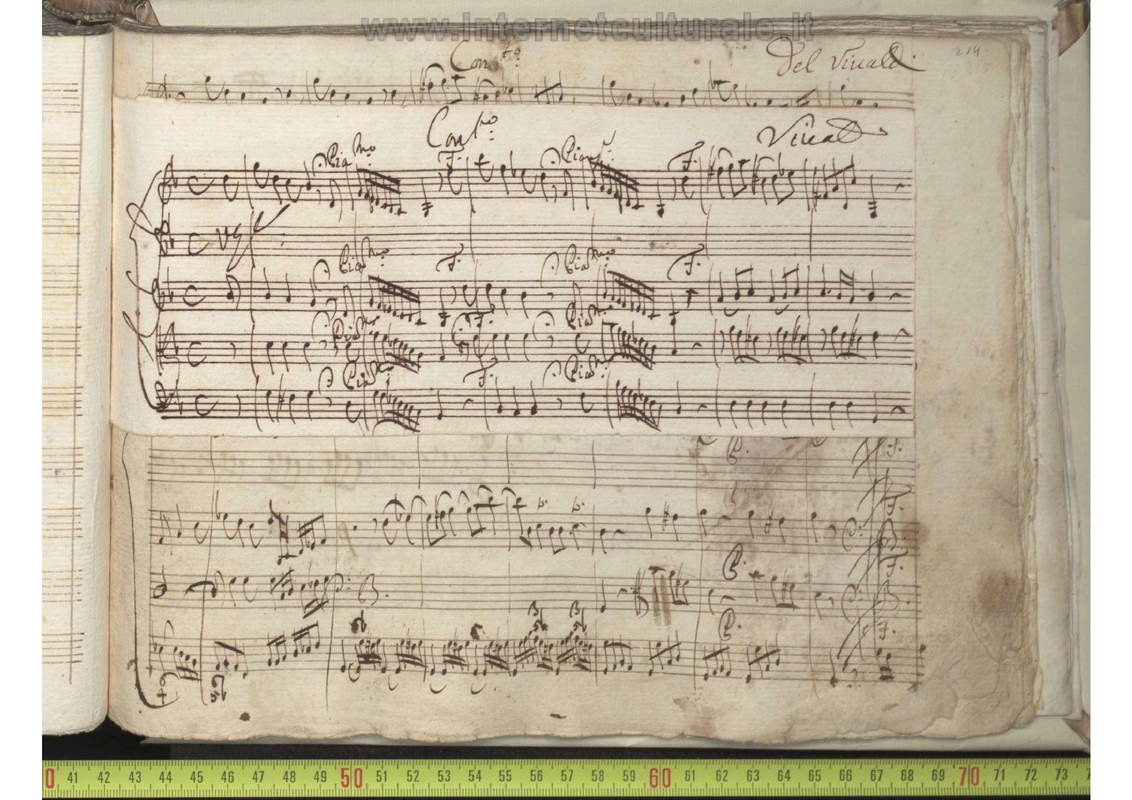 www.internetculturale.it
Con.to Del Vivaldi 214
Con.to Vivaldi
Pia.mo F. Pia.mo F.
Pia.mo F. Pia.mo F.
Pia.mo Pia.mo
Pia.mo F. Pia.mo
P. F.
F.
P. F.
P. F.
0 41 42 43 44 45 46 47 48 49 50 51 52 53 54 55 56 57 58 59 60 61 62 63 64 65 66 67 68 69 70 71 72 73 7